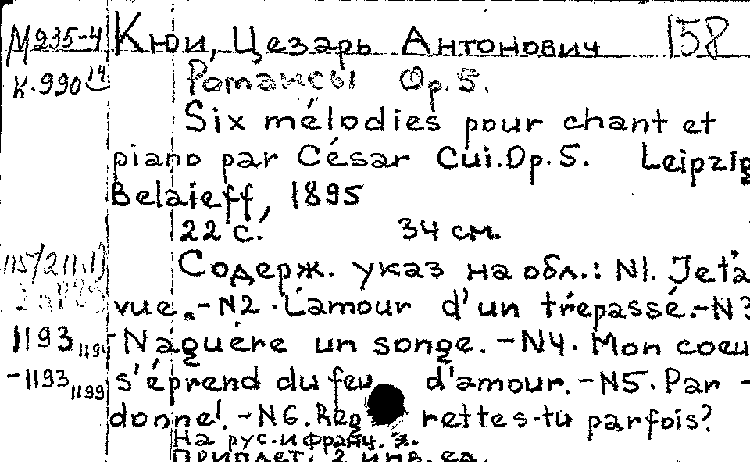 М235-4 Кюи, Цезарь Антонович 158
К-990 Романсы Op.5.
Six mélodies pour chant et
piano par César Cui. Op.5. Leipzig
Belaieff, 1895
22 с. 34 см.
Содерж. указ на обл.: N1. Jet'a
vue. - N2. L'amour d'un trépassé. - N3
1193 1194 Naguère un songe. - N4. Mon coeu
-1193 1199 s'éprend du feu d'amour. - N5. Par -
donne! - N6. Reg rettes-tu parfois?
На рус. и франц. я.
Приплет: 2 инв. ед.